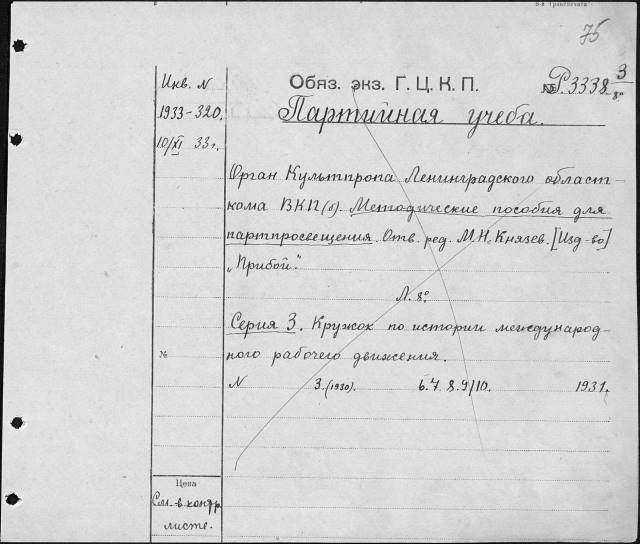 75
Инв. N
1933-320.
10/XI 33 г.
Обяз. экз. Г. Ц. К. П.
№ Р.3338 3/8º
Партийная учеба.
Орган Культпропа Ленинградского област-
кома ВКП(б). Методические пособия для
партпросвещения. Отв. ред. М. Н. Князев. [Изд-во]
„Прибой".
Л. 8º
Серия 3. Кружок по истории международ-
ного рабочего движения.
№
N 3. (1930). 6. 7. 8. 9/10. 1931.
Цена
См. в контр.
листе.